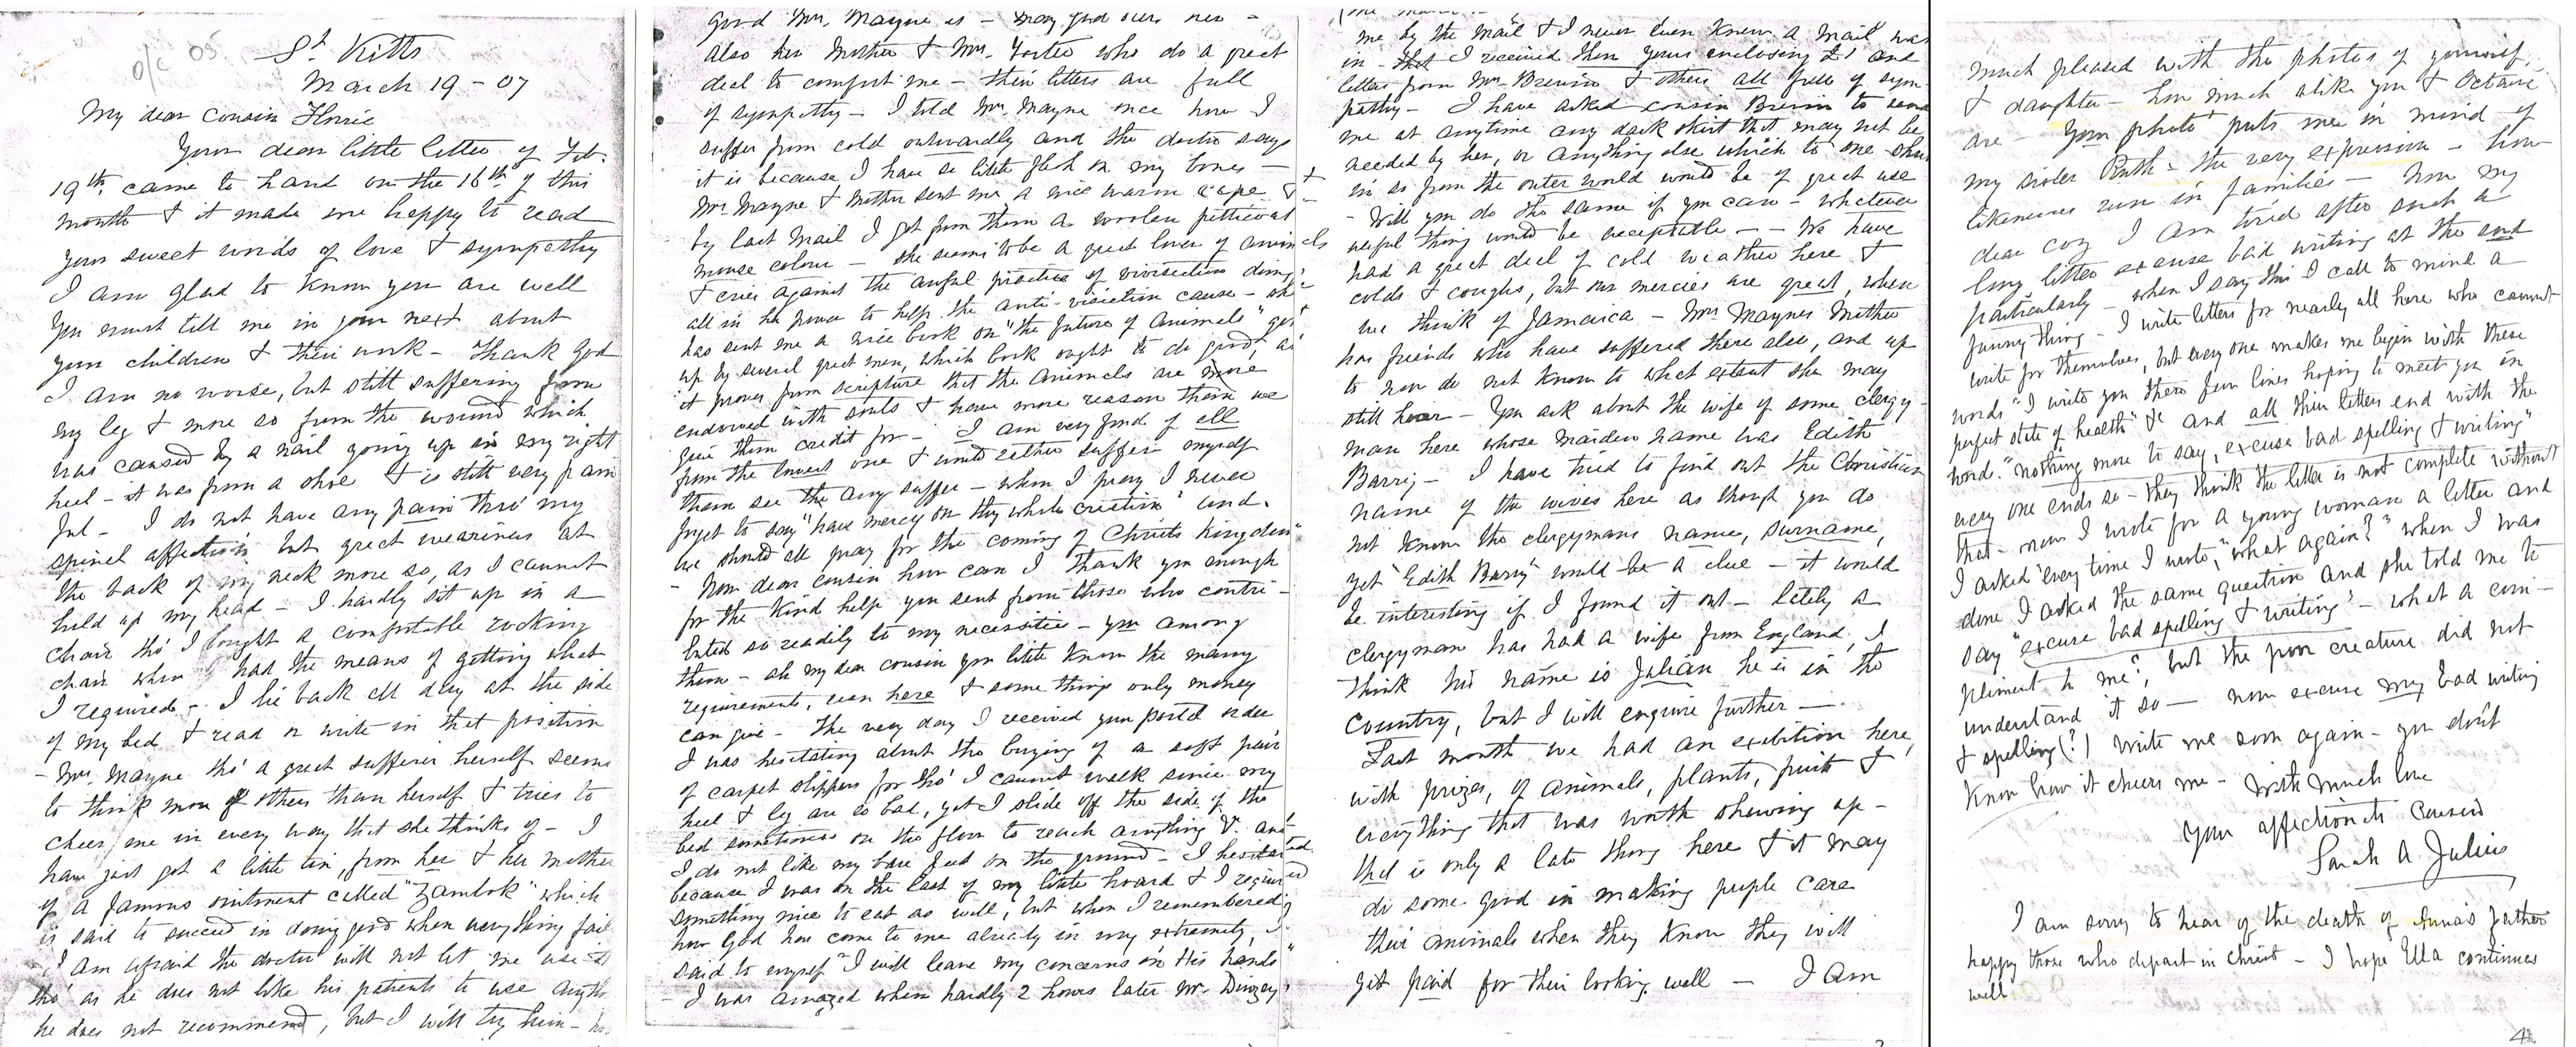 St Kitts
March 19 - 07
My dear Cousin Florrie
Your dear little letter of Feb.
19th. came to hand on the 16th of this
month & it made me happy to read
your sweet words of love & sympathy
I am glad to know you are well
You must tell me in your next about
your children & their work - Thank God
I am no worse, but still suffering from
my leg & more so from the wound which
was caused by a nail going up in my right
heel - it was from a shoe & is still very pain
ful - I do not have any pain thro' my
spinel affection but great weariness at
the back of my neck more so, as I cannot
hold up my head - I hardly sit up in a
chair tho' I bought a comfortable rocking
chair when I had the means of getting what
I required - I lie back all day at the side
of my bed & read or write in that position
- Mrs. Mayne tho' a great sufferer herself seems
to think more of others than herself & tries to
cheer me in every way that she thinks of - I
have just got a little tin, from her & her mother
of a famous ointment called "Zambuk" which
is said to succeed in doing good when everything fail
I am afraid the doctor will not let me use it
tho' as he does not like his patients to use anyth
he does not recommend, but I will try him - ho
good Mrs. Mayne is - may God bless her -
also her Mother & Mrs. who do a great
deal to comfort me - their letters are full
of sympathy - I told Mrs. Mayne once how I
suffer from cold outwardly and the doctor says
it is because I have so little flesh on my bones -
Mrs. Mayne & Mother sent me a nice warm cape &
by last Mail I got from them a woolen petticoat
mouse colour - she seems to be a great lover of animals
& cries against the awful practice of vivisection doing
all in her power to help the anti-vivisection cause - she
has sent me a nice book on "the future of Animals" got
up by several great men, which book ought to do good, as
it proves from scripture that the animals are more
endowed with souls & have more reason than we
give them credit for - I am very fond of all
from the lowest one & would rather suffer myself
than see the any suffer - when I pray I never
forget to say "have mercy on thy whole creation" and
we should all pray for the coming of Christs Kingdom"
- Now dear cousin how can I thank you enough
for the kind help you sent from those who contri-
buted so readily to my necessities - you among
them - ah my dear cousin you little know the many
requirements, even here & some things only money
can give - The very day I received your postal order
I was hesitating about the buying of a soft pair
of carpet slippers for tho' I cannot walk since my
heel & leg are so bad, yet I slide off the side of the
bed sometimes on the floor to reach anything &. and
I do not like my bare feet on the ground - I hesitated
because I was on the last of my little hoard & I required
something nice to eat as well, but when I remembered
how God has come to me already in my extremity, I
said to myself "I will leave my concerns in His hands"
- I was amazed when hardly 2 hours later Mr. Dinzey
me by the Mail & I never even knew a Mail was
in - I received then yours enclosing £1 and
letter from Mrs. Brewin & others all full of sym
pathy - I have asked cousin Brewin to send
me at anytime any dark skirt that may not be
needed by her, or anything else which to one shut
in so from the outer world would be of great use
- Will you do the same if you can - whatever
useful thing would be acceptable - - We have
had a great deal of cold weather here &
colds & coughs, but our mercies are great, when
we think of Jamaica - Mrs Maynes Mother
has friends who have suffered there also, and up
to now do not know to what extent she may
still hear - You ask about the wife of some clergy-
man here whose maiden name was Edith
Barry - I have tried to find out the Christian
name of the wives here as though you do
not know the clergymans name, surname,
yet "Edith Barry" would be a clue - it would
be interesting if I found it out - lately a
clergyman has had a wife from England, I
think his name is Julian he is in the
Country, but I will enquire further -
Last month we had an exibition here,
with prizes, of animals, plants, fruit &
everything that was worth showing up -
that is only a late thing here & it may
do some good in making people care
their animals when they know they will
get paid for their looking well - I am
much pleased with the photos of yourself,
& daughter - how much alike you & Octavie
are - Your photo puts me in mind of
my sister Ruth - the very expression - how
likenesses run in families - Now my
dear coz I am tired after such a
long letter excuse bad writing at the end
particularly - when I say this I call to mind a
funny thing - I write letters for nearly all here who cannot
write for themselves, but every one makes me begin with these
words "I write you these few lines hoping to meet you in
perfect state of health" &c and all their letters end with the
word. "nothing more to say, excuse bad spelling & writing"
every one ends so - they think the letter is not complete without
that - now I wrote for a young woman a letter and
I asked every time I wrote, "what again?" when I was
done I asked the same question and she told me to
say "excuse bad spelling & writing" - what a com-
pliment to me!, but the poor creature did not
understand it so - now excuse my bad writing
& spelling (?) Write me soon again - you don't
know how it cheers me - With much love
Your affectionate Cousin
Sarah A Julius
I am sorry to hear of the death of Anna's father
happy those who depart in Christ - I hope Ella continues
well